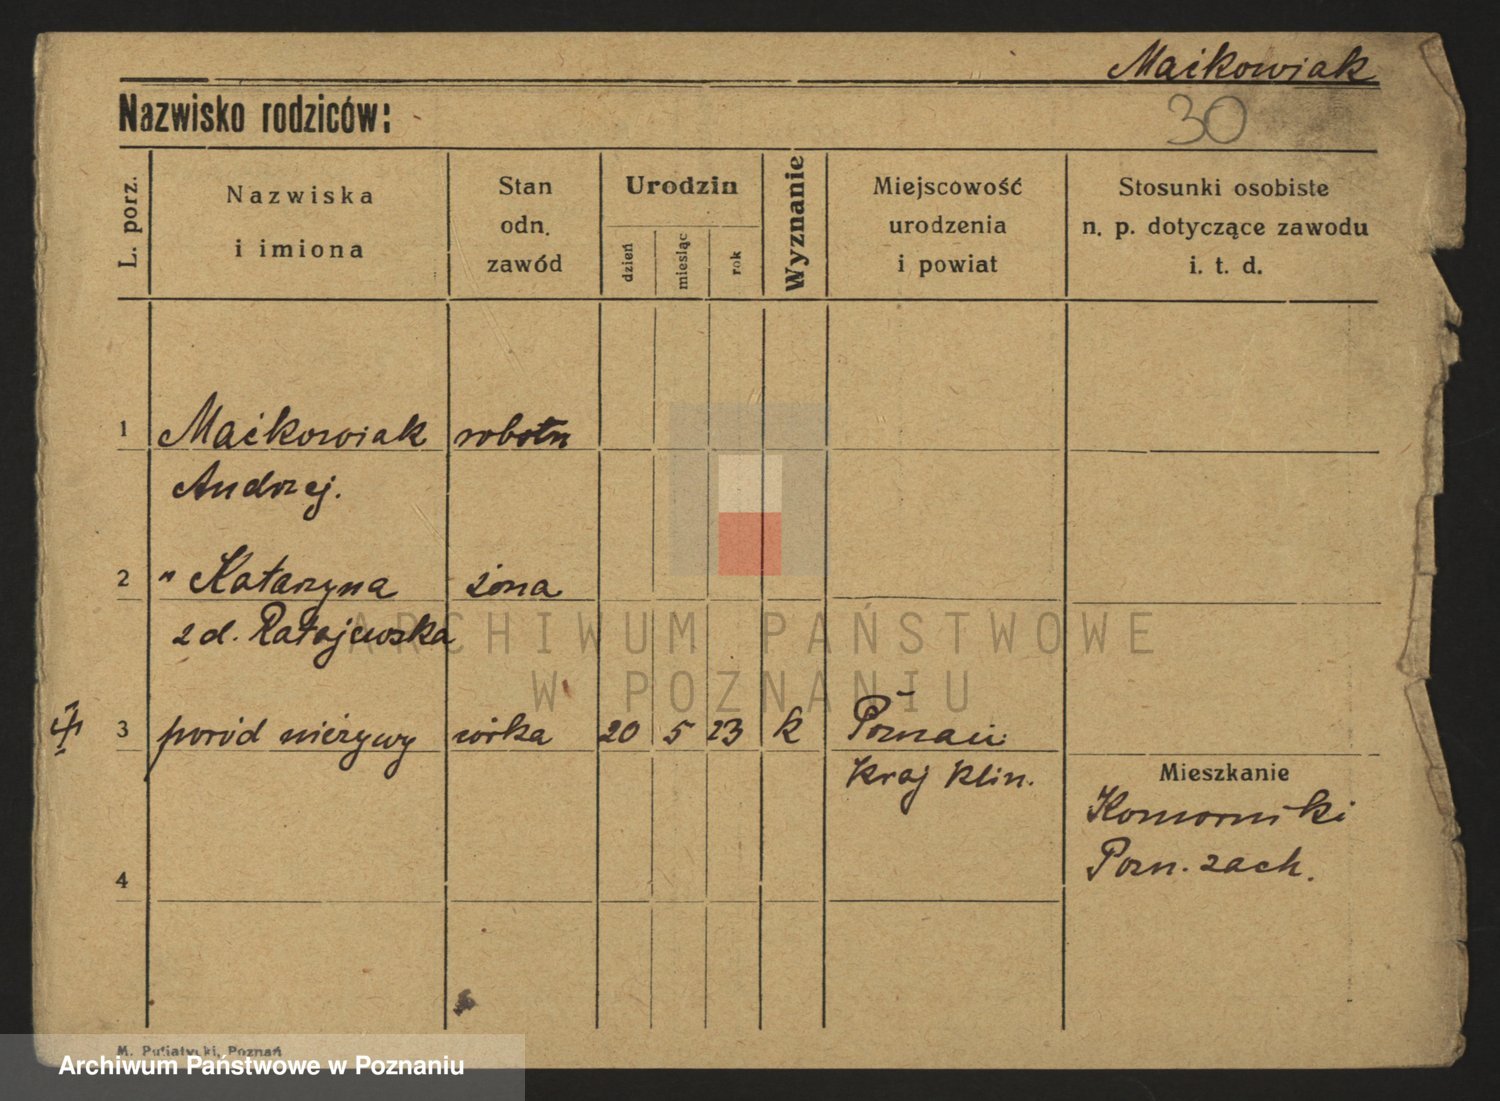 Maćkowiak
Nazwisko rodziców:
30
L. porz.
Nazwiska
i imiona
Stan
odn.
zawód
Urodzin
dzień
miesiąc
rok
Wyznanie
Miejscowość
urodzenia
i powiat
Stosunki osobiste
n. p. dotyczące zawodu
i. t. d.
1 Maćkowiak robotn
Andrzej.
2 " Katarzyna żona
z d. Ratajewska
ARCHIWUM PAŃSTWOWE
W POZNANIU
3 poród nieżywy córka 20 5 23 k Poznań
Kraj Klin.
Mieszkanie
Komorniki
Pozn. zach.
4
M. Putiatycki, Poznań
Archiwum Państwowe w Poznaniu